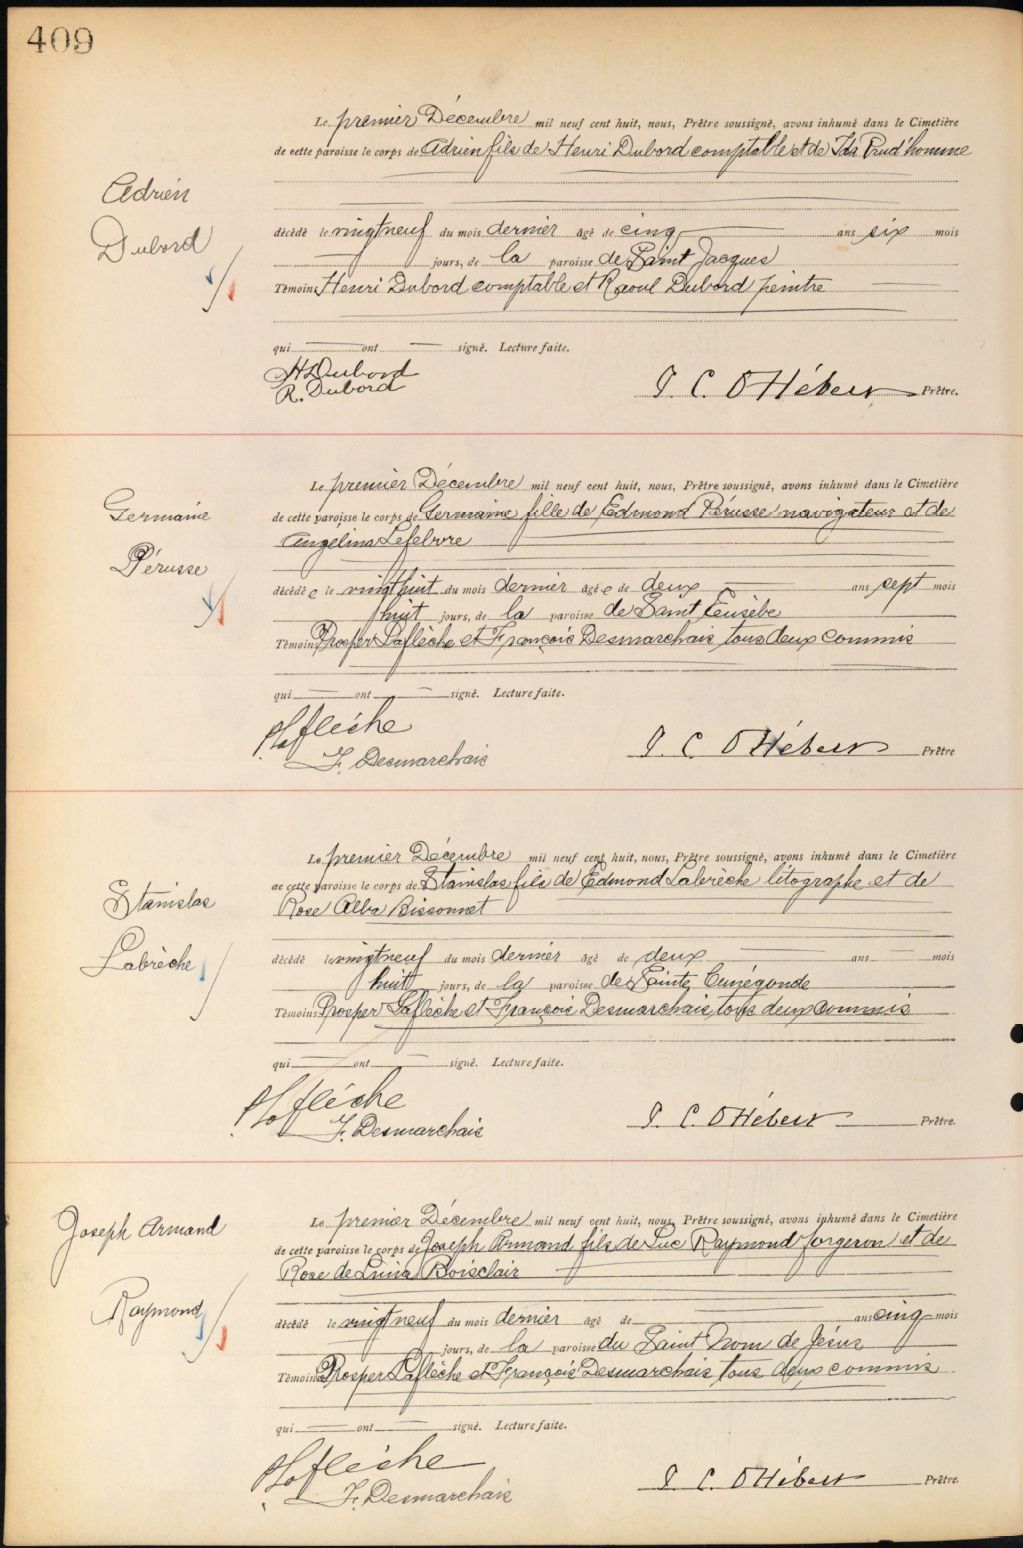 409
Le premier Décembre mil neuf cent huit, nous, Prêtre soussigné, avons inhumé dans le Cimetière
de cette paroisse le corps de Adrien fils de Henri Dubord comptable et de Ida Prud'homme
Adrien
Dubord
décédé le vingtneuf du mois dernier âgé de cinq ans six mois
jours, de la paroisse de Saint Jacques
Témoins Henri Dubord comptable et Raoul Dubord peintre
qui ont signé. Lecture faite.
H Dubord
R. Dubord
J. C. O Hébert Prêtre.
Le premier Décembre mil neuf cent huit, nous, Prêtre soussigné, avons inhumé dans le Cimetière
de cette paroisse le corps de Germaine fille de Edmond Pérusse navigateur et de
Angélina Lefebvre
Germaine
Pérusse
décédé e le vingthuit du mois dernier âgé e de deux ans sept mois
huit jours, de la paroisse de Saint Eusèbe
Témoins Prosper Laflèche et François Desmarchais tous deux commis
qui ont signé. Lecture faite.
P Laflèche
F. Desmarchais
J. C. O Hébert Prêtre
Le premier Décembre mil neuf cent huit, nous, Prêtre soussigné, avons inhumé dans le Cimetière
de cette paroisse le corps de Stanislas fils de Edmond Labrèche litographe et de
Rose Alba Bissonnet
Stanislas
Labrèche
décédé le vingtneuf du mois dernier âgé de deux ans mois
huit jours, de la paroisse de Sainte Cunégonde
Témoins Prosper Laflèche et François Desmarchais tous deux commis
qui ont signé. Lecture faite.
P Laflèche
F. Desmarchais
J. C. O Hébert Prêtre.
Le premier Décembre mil neuf cent huit, nous, Prêtre soussigné, avons inhumé dans le Cimetière
de cette paroisse le corps de Joseph Armand fils de Luc Raymond forgeron et de
Rose de Lima Boisclair
Joseph Armand
Raymond
décédé le vingtneuf du mois dernier âgé de ans cinq mois
jours, de la paroisse du Saint Nom de Jésus
Témoins Prosper Laflèche et François Desmarchais tous deux commis
qui ont signé. Lecture faite.
P Laflèche
F. Desmarchais
J. C. O Hébert Prêtre.